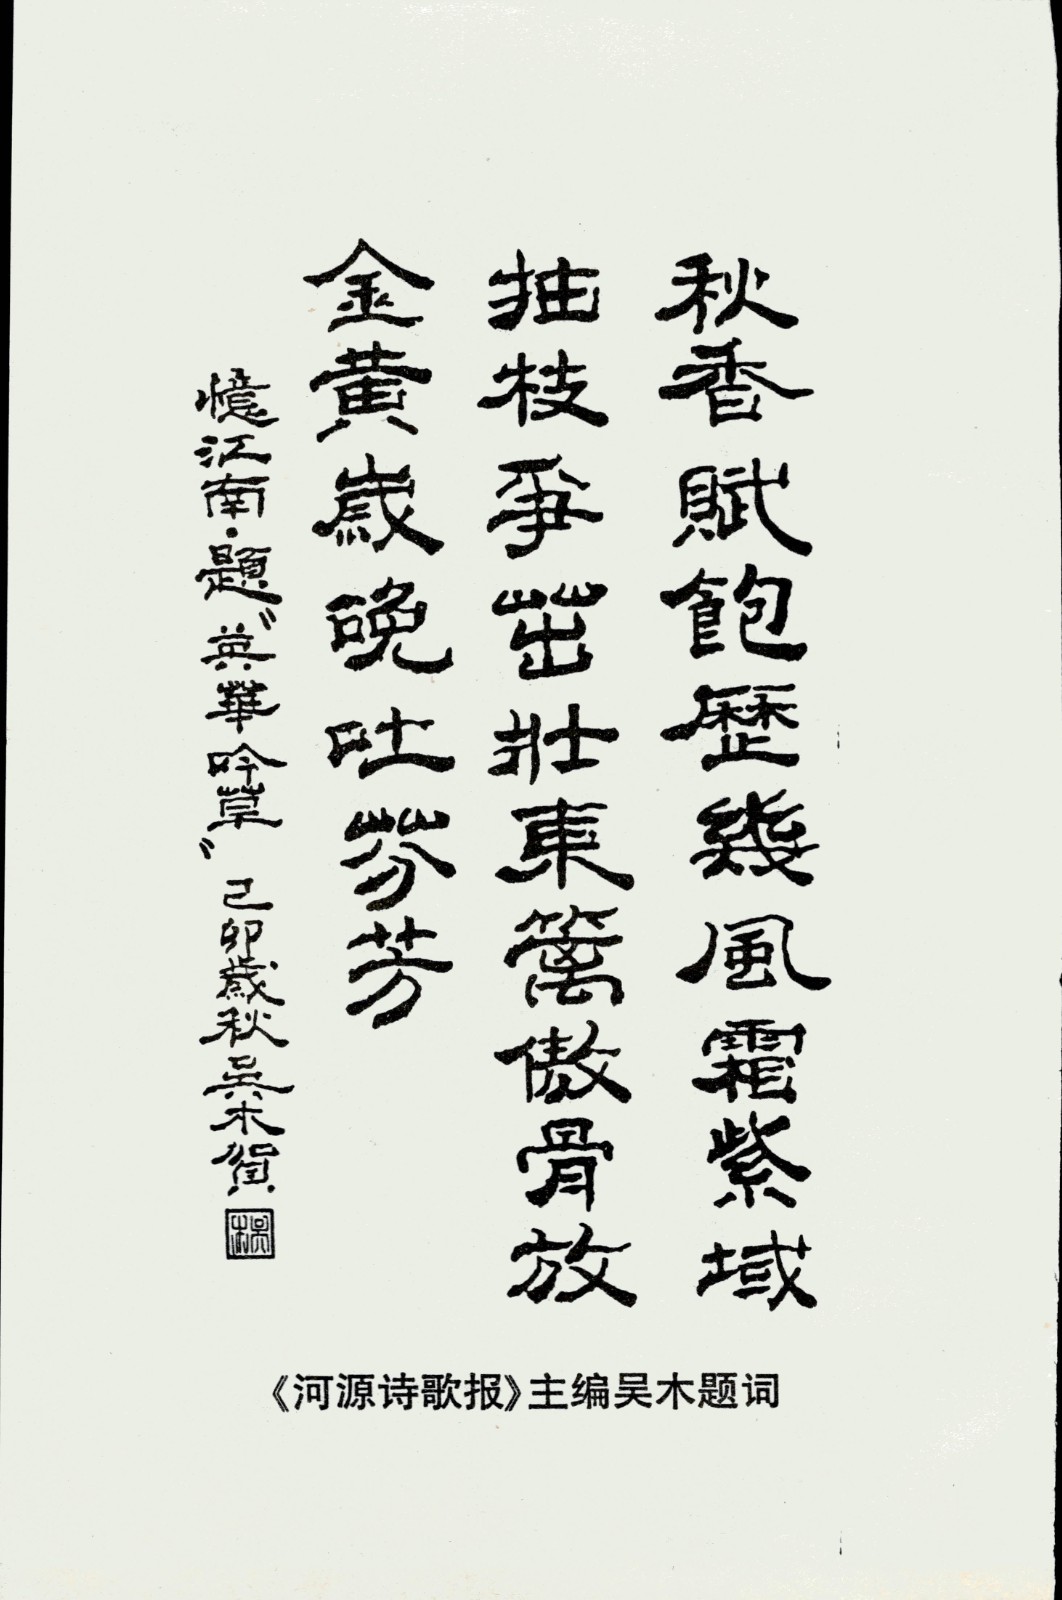 秋香賦飽歷幾風霜紫域
抽枝爭茁壯東籬傲骨放
金黄歲晚吐芬芳
憶江南·題〝英華吟草〞己卯歲秋吳木賀
吳木
《河源诗歌报》主编吴木题词